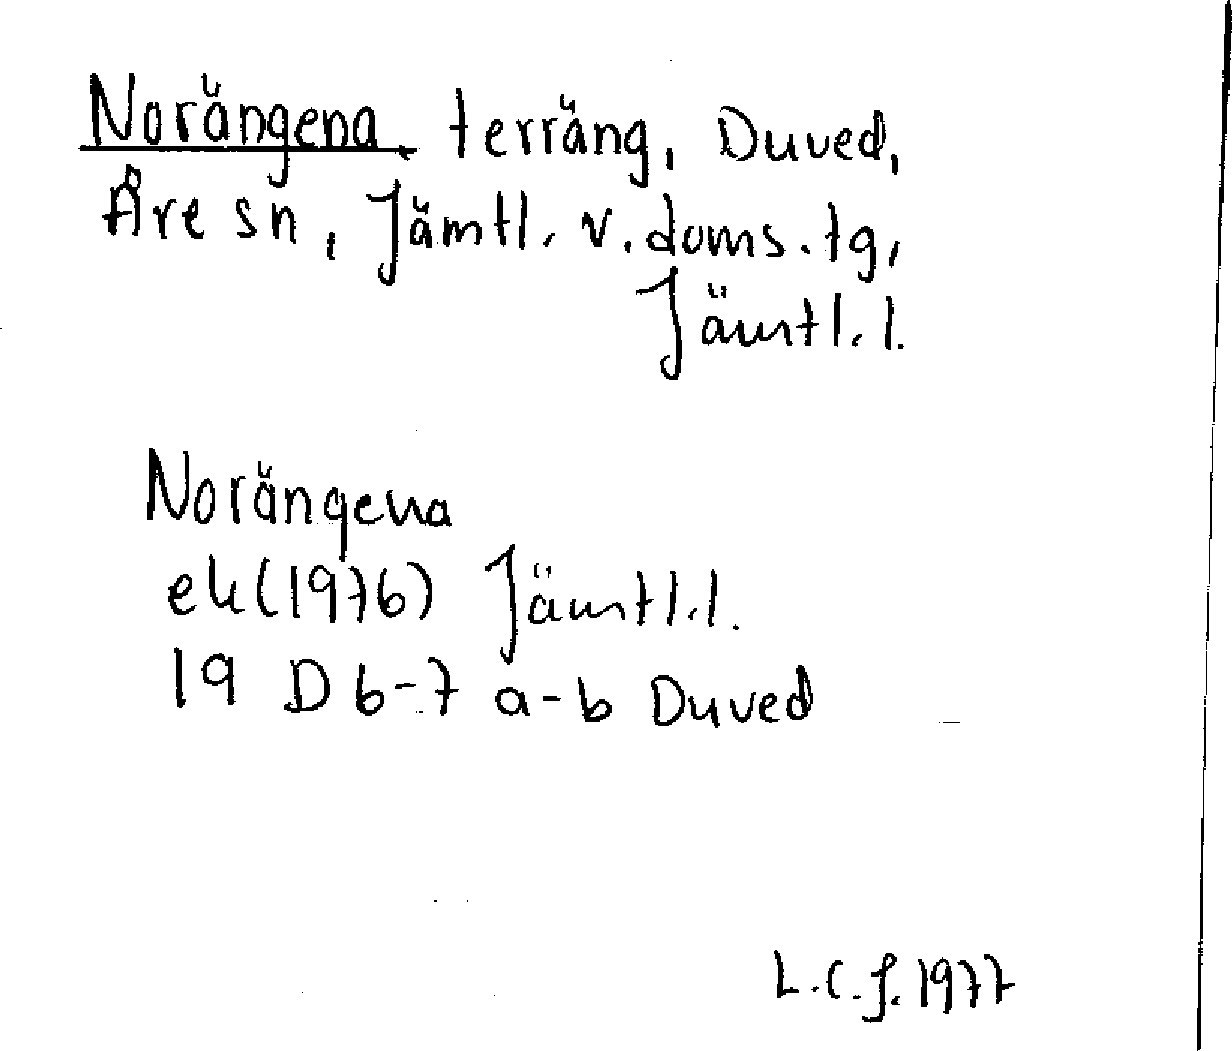 Norängena, terräng, Duved,
Åre sn, Jämtl. v. doms. tg,
Jämtl. l.
Norängena
ek (1976) Jämtl. l.
19 D 6-7 a-b Duved
L.C.f. 1977